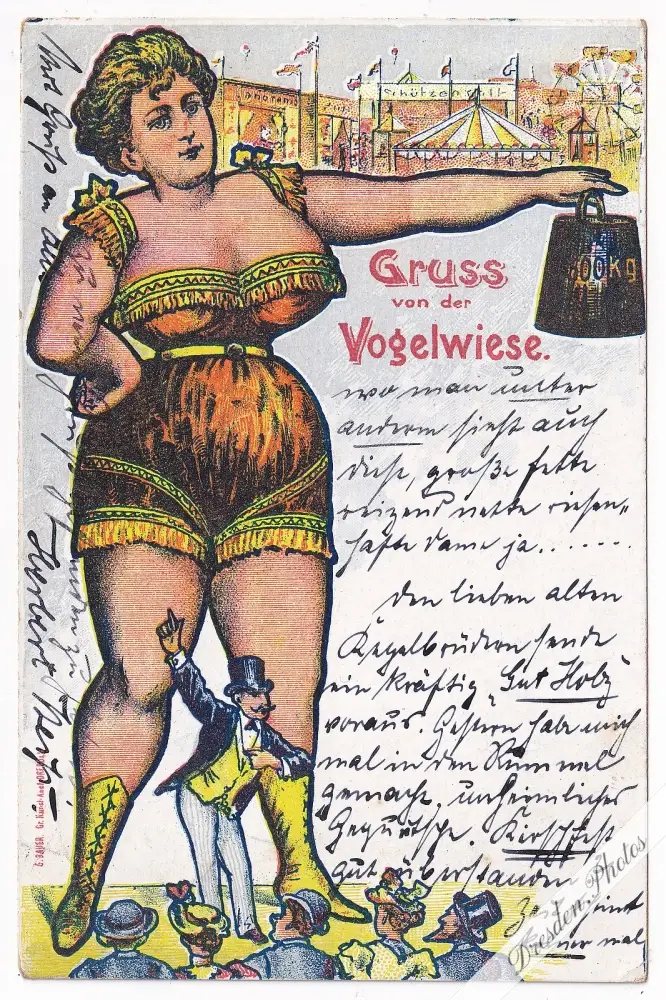 Panorama
Schützenzelt
400 kg
Gruss
von der
Vogelwiese.
wo man unter
anderm sieht auch
diese, große fette
reizend nette riesen„
hafte Dame ja......
Den lieben alten
Kegelbrüdern sende
ein kräftig „Gut Holz“
voraus. Gestern habe mich
mal in den Rummel
gemacht, unheimliches
Gequetsche. Kirschfest
gut überstanden
nur mal
Herbert
G. BAUER. Gr. Kunst-Anst. DRESDEN
Dresden.Photos